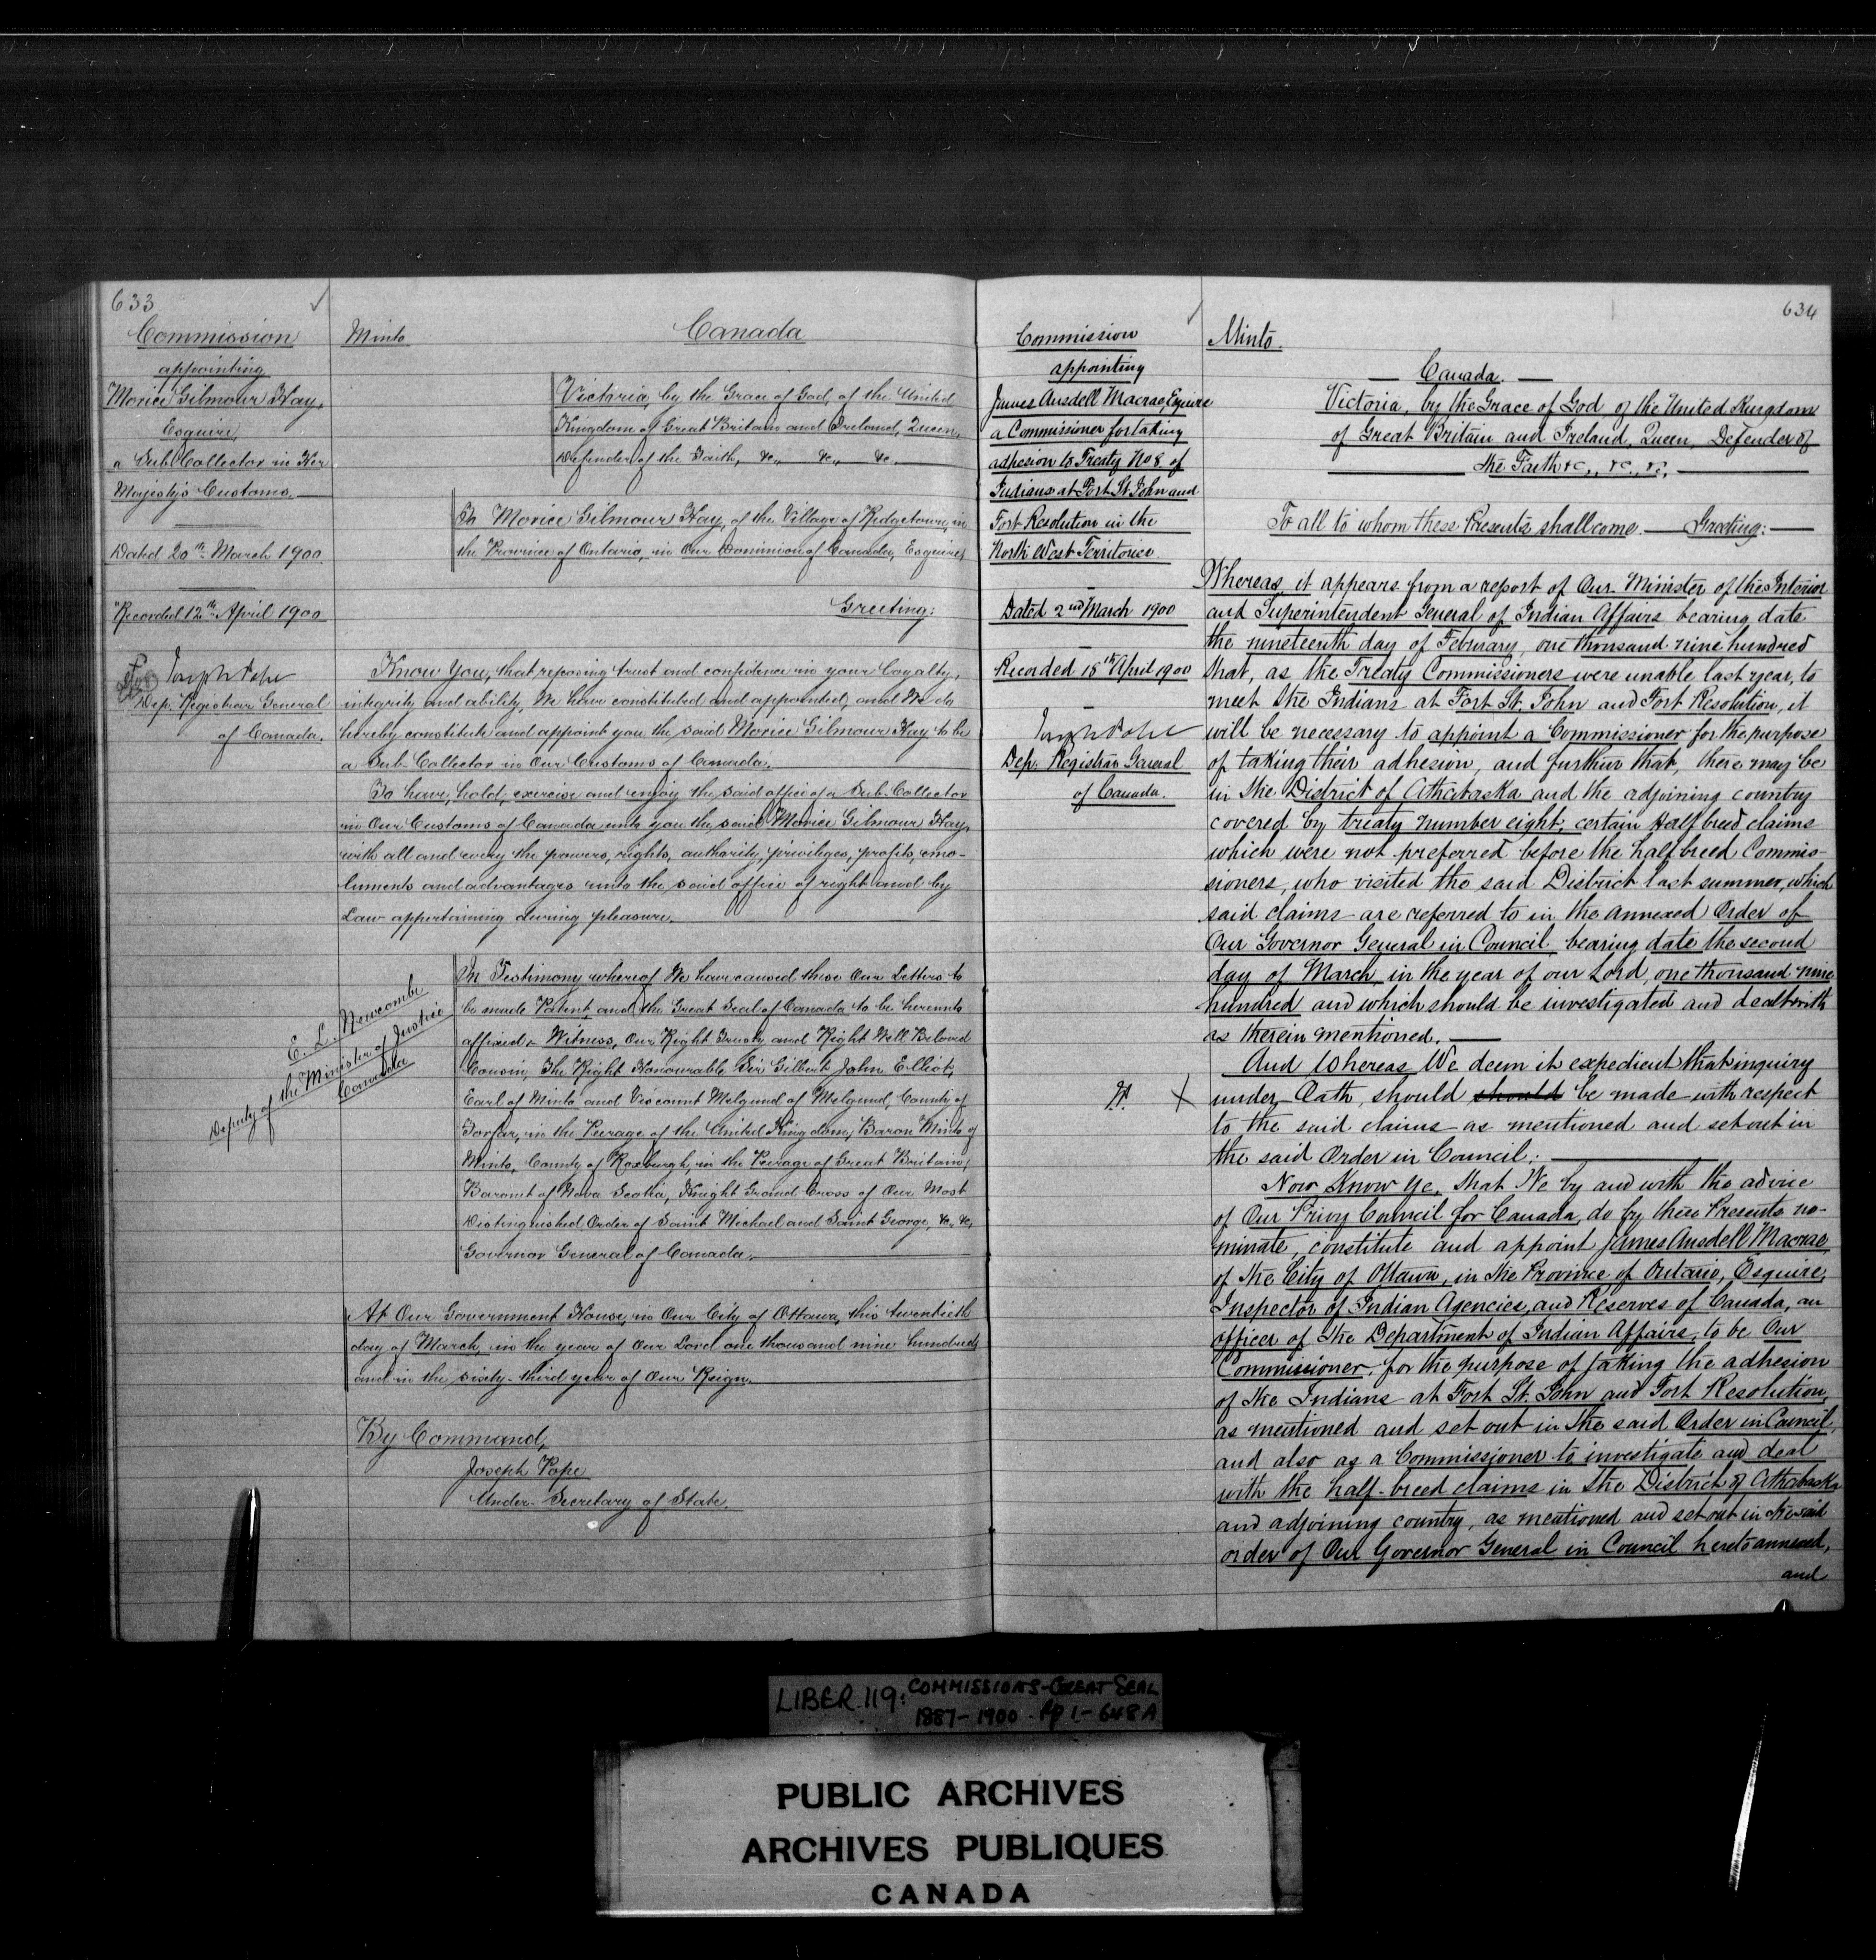 633
Commission
appointing
Morice Gilmour Hay,
Esquire,
a Sub Collector in Her
Majesty's Customs.
Dated 20th March 1900.
Recorded 12th April 1900
Joseph Pope
Dep. Registrar General
of Canada.
Minto
Canada
Victoria, by the Grace of God, of the United
Kingdom of Great Britain and Ireland, Queen,
Defender of the Faith, &c., &c., &c.
To Morice Gilmour Hay, of the Village of Ridgetown, in
the Province of Ontario, in Our Dominion of Canada, Esquire,
Greeting:
Know You, that reposing trust and confidence in your loyalty,
integrity and ability, We have constituted and appointed, and We do
hereby constitute and appoint you the said Morice Gilmour Hay to be
a Sub-Collector in Our Customs of Canada.
To have, hold, exercise and enjoy the said office of a Sub-Collector
in Our Customs of Canada unto you the said Morice Gilmour Hay,
with all and every the powers, rights, authority, privileges, profits, emo-
luments and advantages unto the said office of right and by
Law appertaining during pleasure.
E. L. Newcombe
Deputy of the Minister of Justice
Canada
In Testimony whereof We have caused these Our Letters to
be made Patent, and the Great Seal of Canada to be hereunto
affixed. Witness, Our Right Trusty and Right Well Beloved
Cousin, The Right Honourable Sir Gilbert John Elliot,
Earl of Minto and Viscount Melgund of Melgund, County of
Forfar, in the Peerage of the United Kingdom, Baron Minto of
Minto, County of Roxburgh, in the Peerage of Great Britain,
Baronet of Nova Scotia, Knight Grand Cross of Our Most
Distinguished Order of Saint Michael and Saint George, &c., &c,
Governor General of Canada.
At Our Government House, in Our City of Ottawa, this twentieth
day of March, in the year of Our Lord one thousand nine hundred
and in the sixty-third year of Our Reign.
By Command,
Joseph Pope
Under-Secretary of State.
634
Commission
appointing
James Ansdell Macrae, Esquire
a Commissioner for taking
adhesion to Treaty No 8 of
Indians at Fort St John and
Fort Resolution in the
North West Territories.
Dated 2nd March 1900
Recorded 18th April 1900
Joseph Pope
Dep. Registrar General
of Canada.
Minto.
Canada.
Victoria, by the Grace of God of the United Kingdom
of Great Britain and Ireland, Queen, Defender of
the Faith &c., &c., &c,
To all to whom these Presents shall come. Greeting:
Whereas, it appears from a report of Our Minister of the Interior
and Superintendent General of Indian Affairs bearing date
the nineteenth day of February, one thousand nine hundred
that, as the Treaty Commissioners were unable last year, to
meet the Indians at Fort St. John and Fort Resolution, it
will be necessary to appoint a Commissioner for the purpose
of taking their adhesion, and further that, there may be
in the District of Athabaska and the adjoining country
covered by treaty number eight, certain Half breed claims
which were not preferred before the half breed Commis-
sioners, who visited the said District last summer, which
said claims are referred to in the annexed Order of
Our Governor General in Council, bearing date the second
day of March, in the year of our Lord, one thousand nine
hundred and which should be investigated and dealt with
as therein mentioned.
And Whereas We deem it expedient that inquiry
X under Oath, should should be made with respect
to the said claims as mentioned and set out in
the said Order in Council:
Now Know Ye, that We by and with the advice
of Our Privy Council for Canada, do by these Presents no-
minate, constitute and appoint James Ansdell Macrae,
of the City of Ottawa, in the Province of Ontario, Esquire,
Inspector of Indian Agencies, and Reserves of Canada, an
officer of the Department of Indian Affairs, to be Our
Commissioner, for the purpose of taking the adhesion
of the Indians at Fort St. John and Fort Resolution,
as mentioned and set out in the said Order in Council,
and also as a Commissioner to investigate and deal
with the half-breed claims in the District of Athabaska
and adjoining country, as mentioned and set out in the said
order of Our Governor General in Council hereto annexed,
and
LIBER 119: COMMISSIONS-GREAT SEAL
1887-1900 Pp 1-648A
PUBLIC ARCHIVES
ARCHIVES PUBLIQUES
CANADA